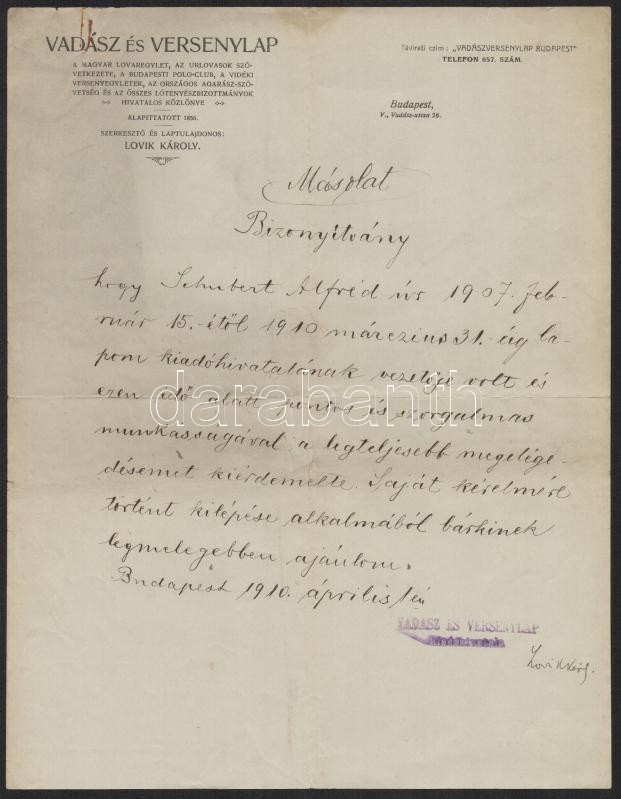 VADÁSZ ÉS VERSENYLAP
A MAGYAR LOVAREGYLET, AZ URLOVASOK SZÖ-
VETKEZETE, A BUDAPESTI POLO-CLUB, A VIDÉKI
VERSENYEGYLETEK, AZ ORSZÁGOS AGARÁSZ-SZÖ-
VETSÉG ÉS AZ ÖSSZES LÓTENYÉSZBIZOTTMÁNYOK
HIVATALOS KÖZLÖNYE
ALAPITTATOTT 1856.
SZERKESZTŐ ÉS LAPTULAJDONOS:
LOVIK KÁROLY.
Távirati czim: „VADÁSZVERSENYLAP BUDAPEST"
TELEFON 657. SZÁM.
Budapest,
V., Vadász-utcza 26.
Másolat
Bizonyítvány
hogy Schubert Alfréd úr 1907. feb-
ruár 15.-étől 1910 márczius 31.-éig la-
pom kiadóhivatalának vezetője volt és
ezen idő alatt pontos és szorgalmas
munkásságával a legteljesebb megelége-
désemet kiérdemelte. Saját kérelmére
történt kilépése alkalmából bárkinek
legmelegebben ajánlom.
Budapest 1910. április 1én
VADÁSZ ÉS VERSENYLAP
kiadóhivatala
Lovik Károly.
darabanth